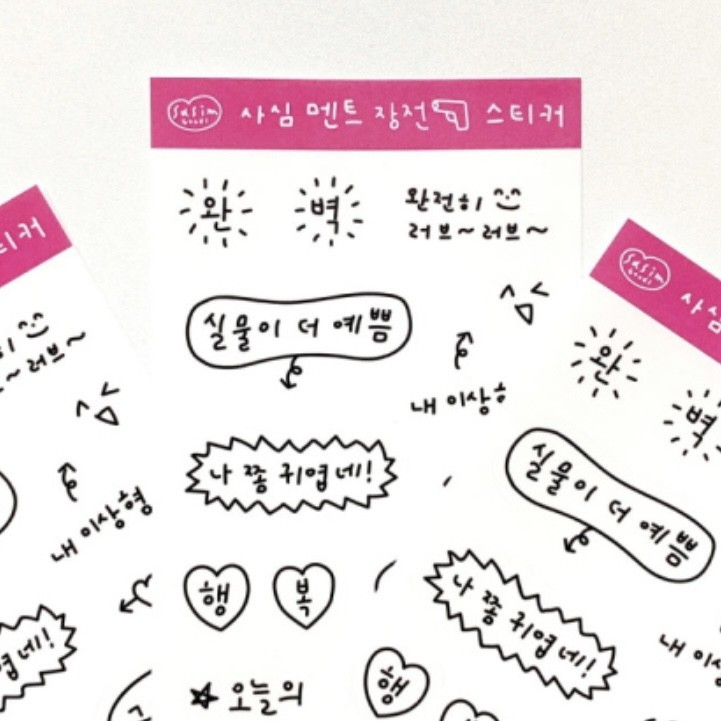 susim
GOODS
사심 멘트 장전 스티커
완
벽
완전히
러브~러브~
실물이 더 예쁨
내 이상형
나 쫌 귀엽네!
행
복
오늘의
티커
러브~
내 이상형
susim
GOODS
사심
완
벽
실물이 더 예쁨
나 쫌 귀엽네!
내 이상
행